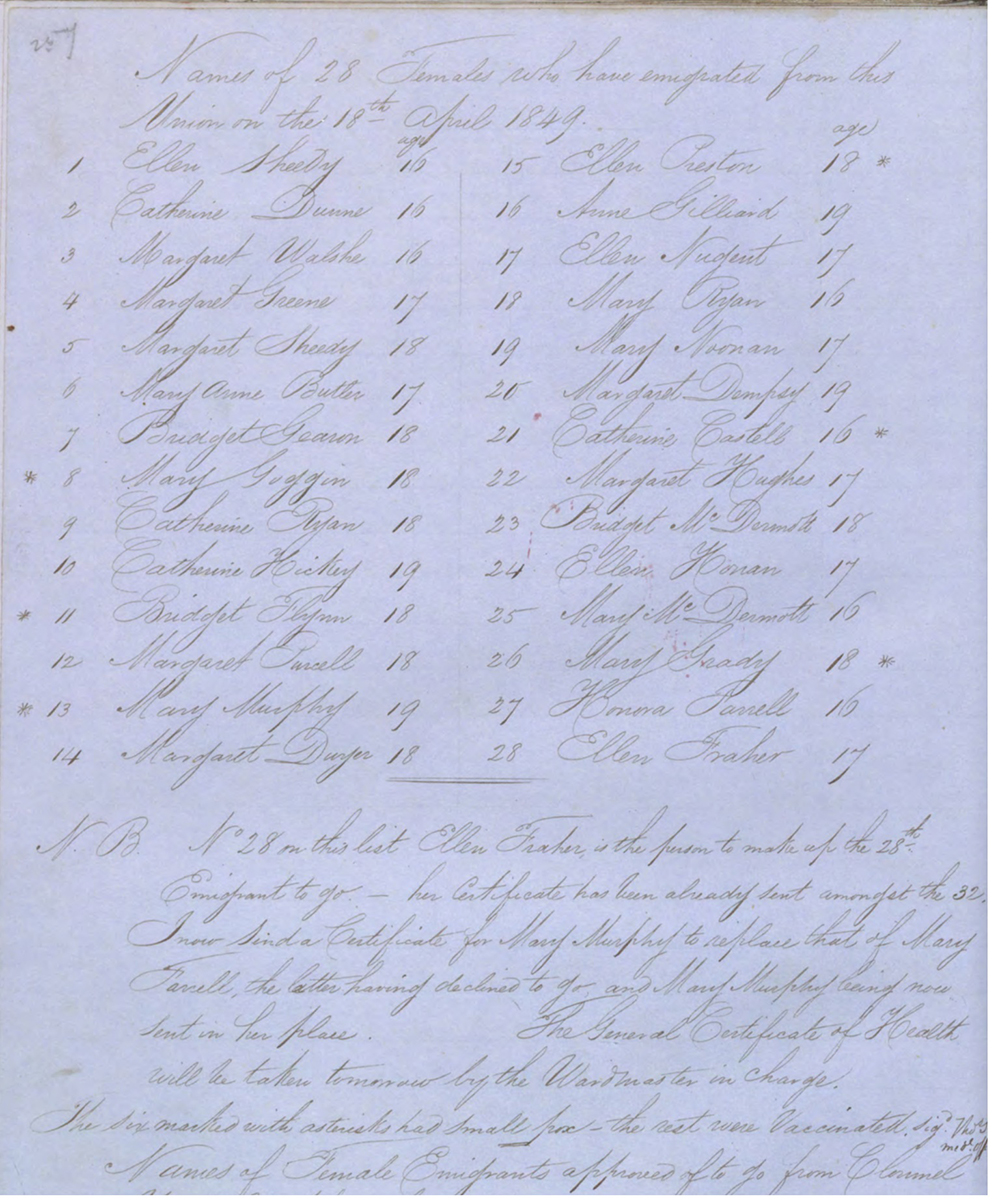 257
Names of 28 Females who have emigrated from this
Union on the 18th April 1849.
age age
1 Ellen Sheedy 16 15 Ellen Preston 18 *
2 Catherine Dunne 16 16 Anne Gilliard 19
3 Margaret Walshe 16 17 Ellen Nugent 17
4 Margaret Greene 17 18 Mary Ryan 16
5 Margaret Sheedy 18 19 Mary Noonan 17
6 Mary Anne Butler 17 20 Margaret Dempsy 19
7 Bridget Gearon 18 21 Catherine Castell 16 *
* 8 Mary Goggin 18 22 Margaret Hughes 17
9 Catherine Ryan 18 23 Bridget Mc Dermott 18
10 Catherine Hickey 19 24 Ellen Honan 17
* 11 Bridget Flynn 18 25 Mary Mc Dermott 16
12 Margaret Purcell 18 26 Mary Grady 18 *
* 13 Mary Murphy 19 27 Honora Farrell 16
14 Margaret Dwyer 18 28 Ellen Fraher 17
N. B. No 28 on this list Ellen Fraher, is the person to make up the 28th
Emigrant to go. — her Certificate has been already sent amongst the 32.
I now send a Certificate for Mary Murphy to replace that of Mary
Farrell, the latter having declined to go, and Mary Murphy being now
sent in her place. The General Certificate of Health
will be taken tomorrow by the Wardmaster in charge.
The six marked with asterisks had small pox – the rest were Vaccinated. sigd.
Names of Female Emigrants approved of to go from Clonmel